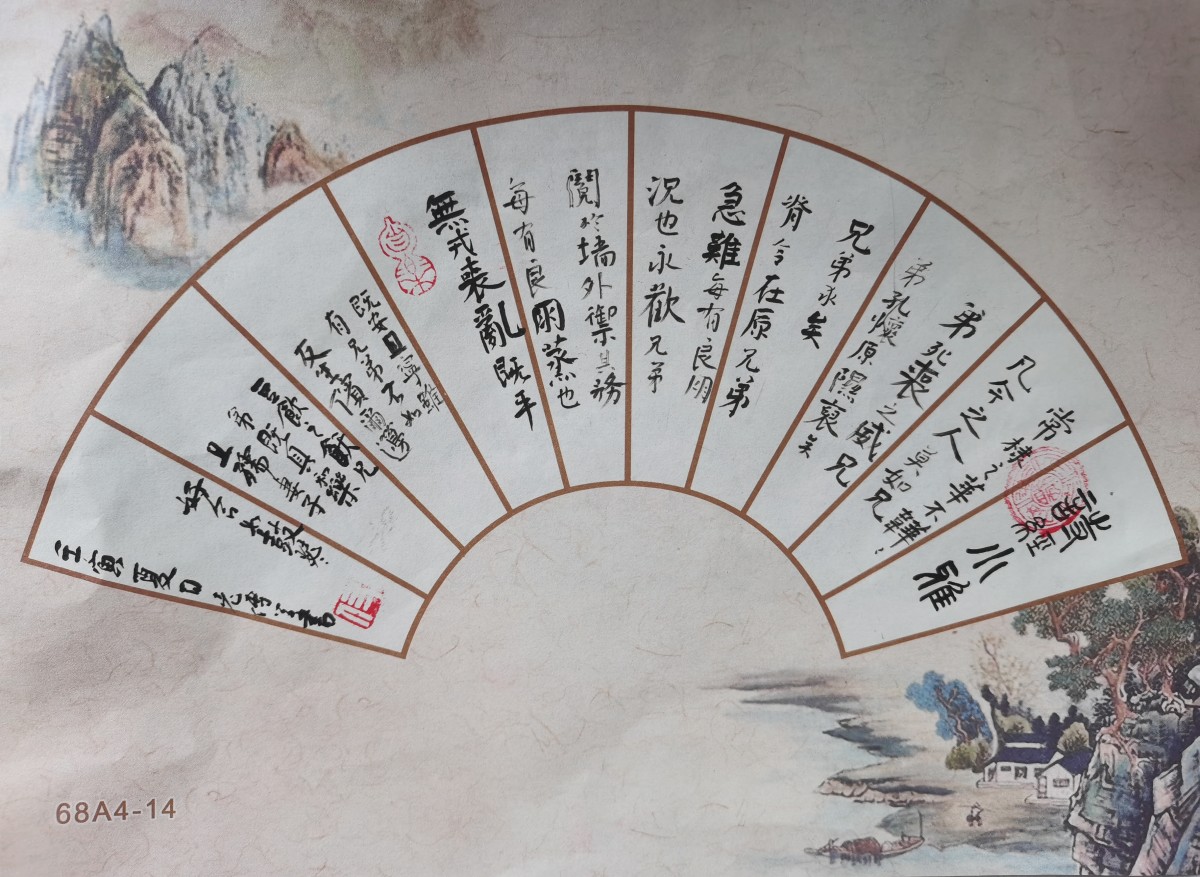 經
小雅
常棣之華不韡、
凡今之人莫如兄
弟死喪之威兄
弟孔懷原隰裒矣
兄弟求矣
脊令在原兄弟
急難每有良朋
況也永歡兄弟
鬩於墙外禦其務
每有良朋蒸也
無戎喪亂既平
既安且寧雖
有兄弟不如
友生儐爾籩
豆飲之飫兄
弟既具和樂
且孺妻子
好合鼓瑟
壬寅夏日書
68A4-14